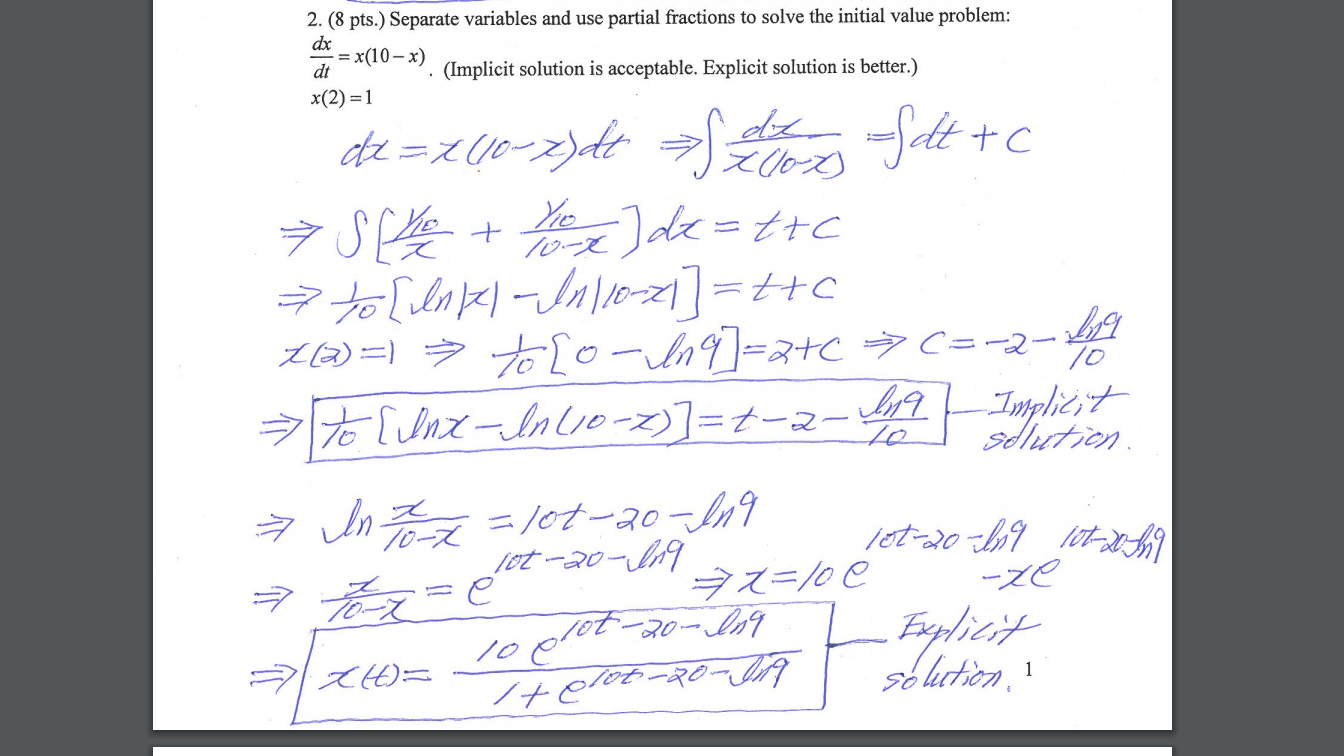 2. (8 pts.) Separate variables and use partial fractions to solve the initial value problem:
dx/dt = x(10 − x) . (Implicit solution is acceptable. Explicit solution is better.)
x(2) = 1
dx = x(10−x)dt ⇒ ∫ dx/x(10−x) = ∫dt + C
⇒ ∫[(1/10)/x + (1/10)/(10−x)]dx = t+C
⇒ 1/10 [ln|x| − ln|10−x|] = t+C
x(2)=1 ⇒ 1/10 [0 − ln9] = 2+C ⇒ C = −2 − ln9/10
⇒ 1/10 [lnx − ln(10−x)] = t−2− ln9/10 — Implicit solution.
⇒ ln x/(10−x) = 10t−20−ln9
⇒ x/(10−x) = e^(10t−20−ln9) ⇒ x = 10e^(10t−20−ln9) − xe^(10t−20−ln9)
⇒ x(t) = 10e^(10t−20−ln9) / (1+e^(10t−20−ln9)) — Explicit solution.
1